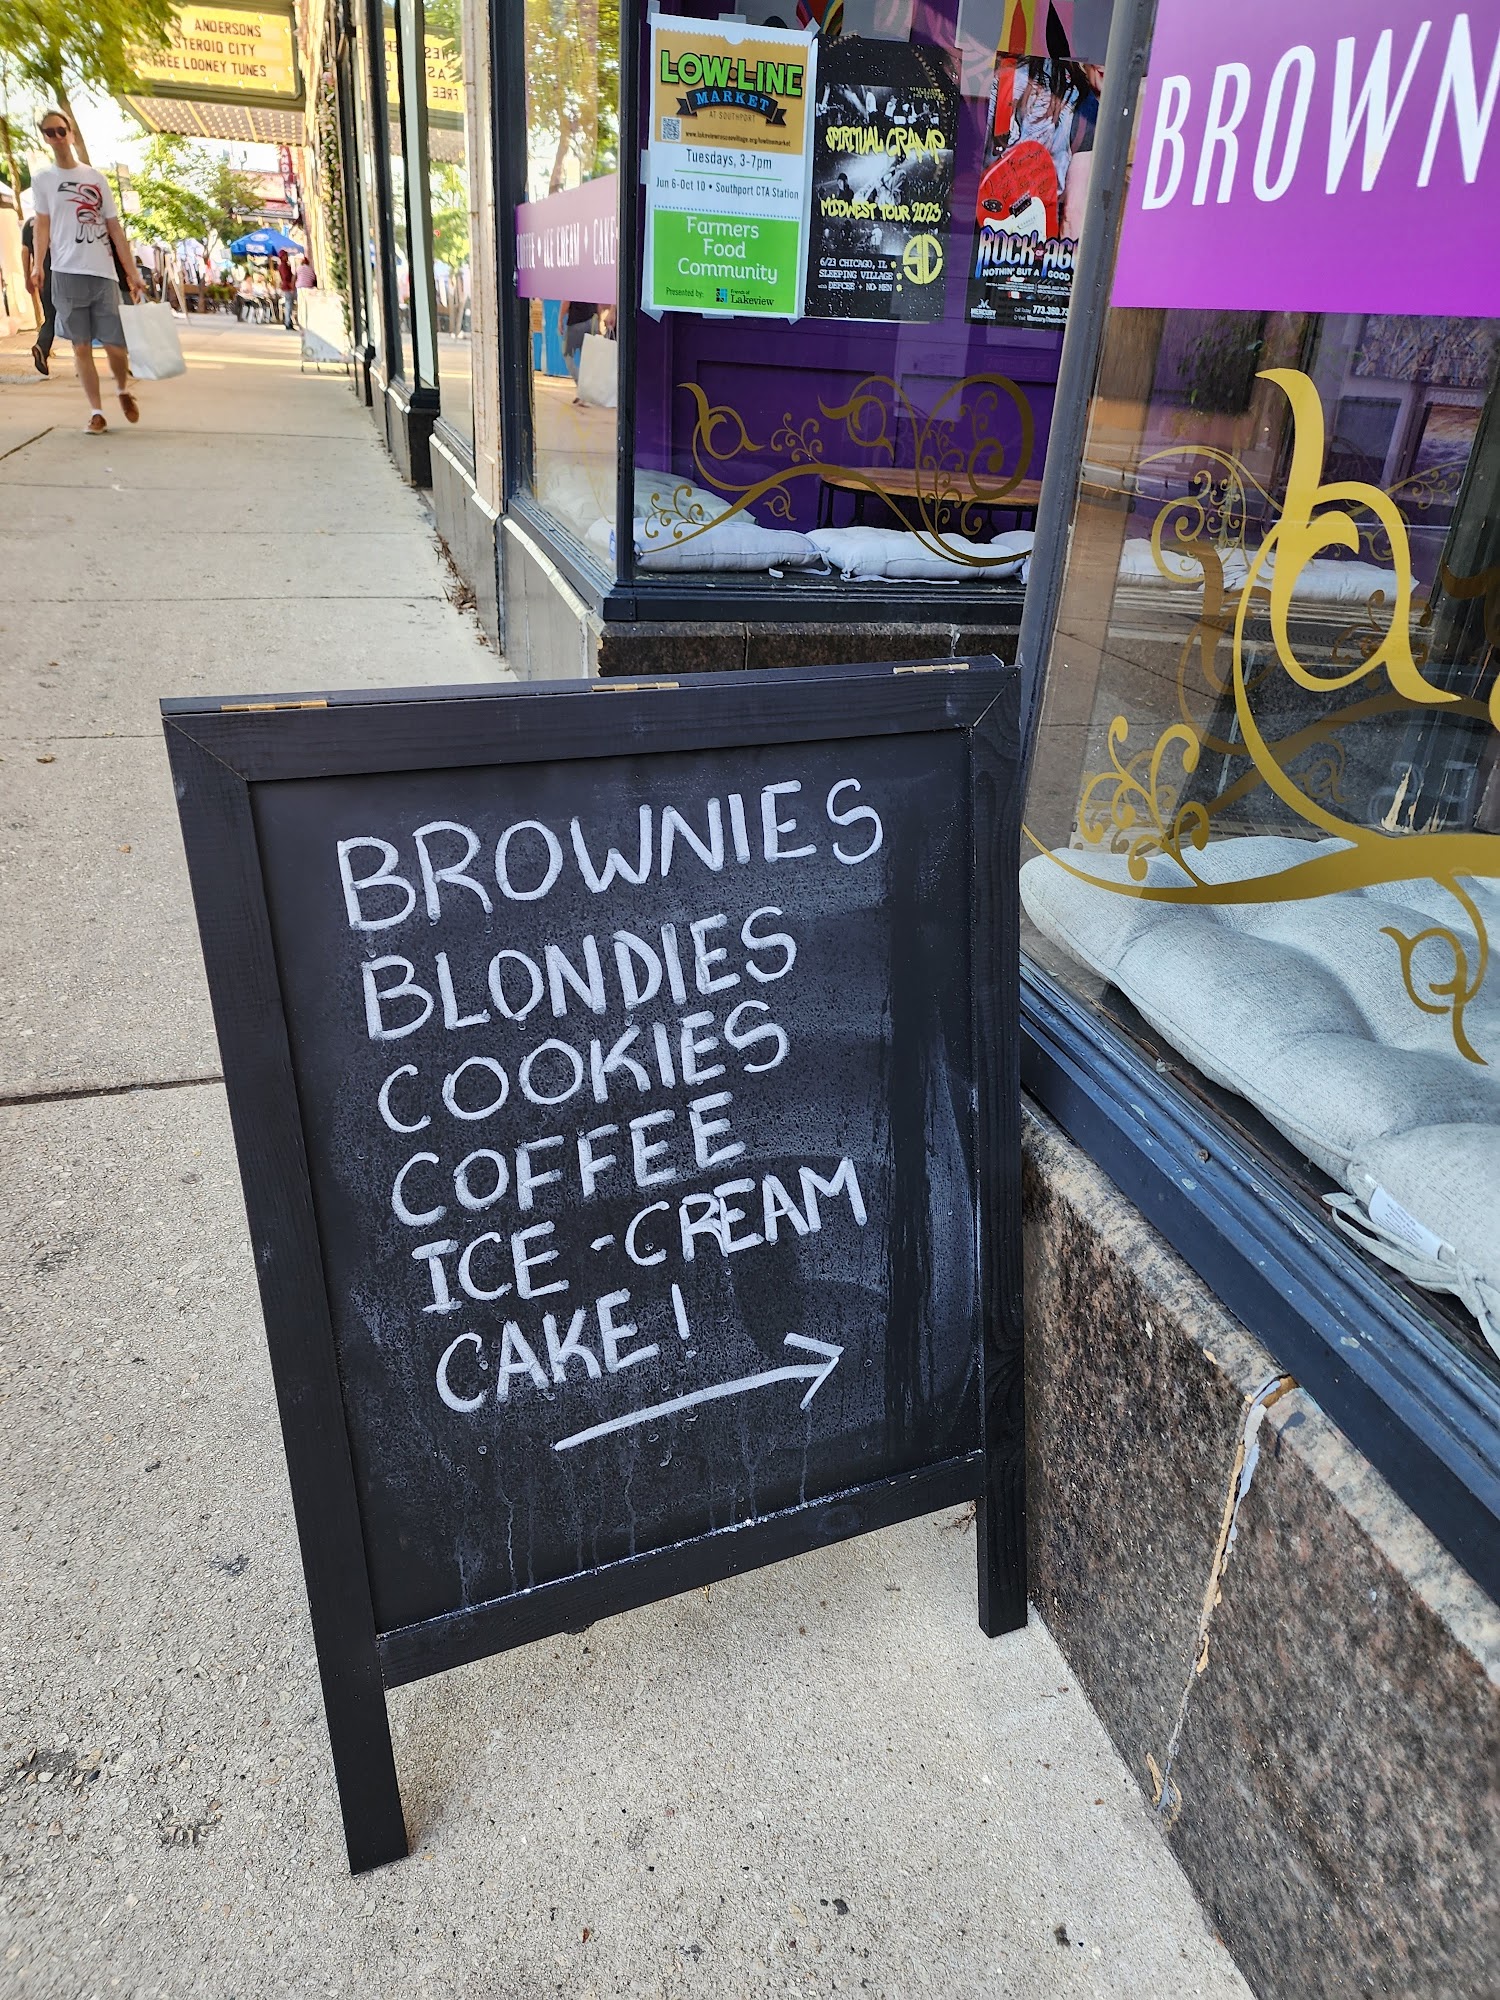 ANDERSONS
STEROID CITY
FREE LOONEY TUNES
LOW-LINE
MARKET
AT SOUTHPORT
www.lakeviewroscoevillage.org/lowlinemarket
Tuesdays, 3-7pm
Jun 6-Oct 10 • Southport CTA Station
Farmers
Food
Community
Presented by: Friends of Lakeview
SPIRITUAL CRAMP
MIDWEST TOUR 2023
6/23 CHICAGO, IL
SLEEPING VILLAGE
DEFCEE + NO MEN
SC
ROCK OF AG
NOTHIN' BUT A GOOD
MERCURY
773.360.73
COFFEE • ICE CREAM • CAKE
BROWN
BROWNIES
BLONDIES
COOKIES
COFFEE
ICE-CREAM
CAKE!